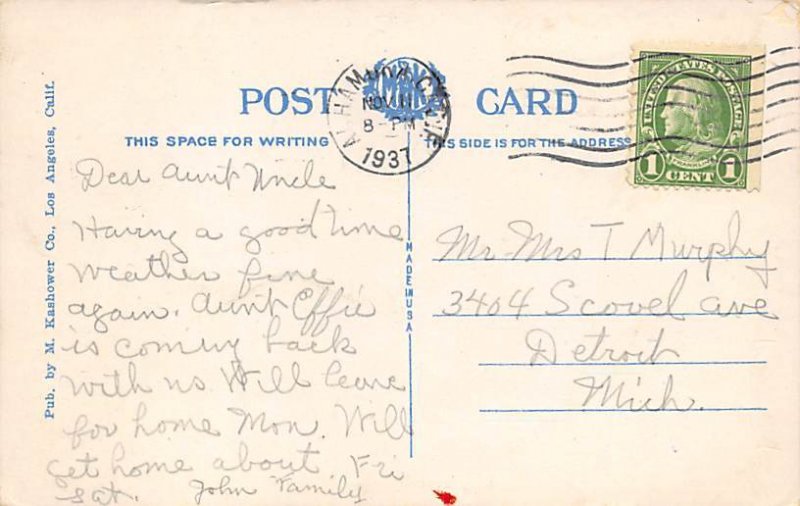 POST CARD
THIS SPACE FOR WRITING
THIS SIDE IS FOR THE ADDRESS
MK
ALHAMBRA, CALIF.
NOV 11
8 - PM
1937
UNITED STATES POSTAGE
FRANKLIN
1 CENT 1
Pub. by M. Kashower Co., Los Angeles, Calif.
MADE IN USA
Dear Aunt Uncle
Having a good time
weather fine
again. Aunt Effie
is coming back
with us Will leave
for home Mon. Will
get home about Fri
Sat. John Family
Mr Mrs T Murphy
3404 Scovel ave
Detroit
Mich.